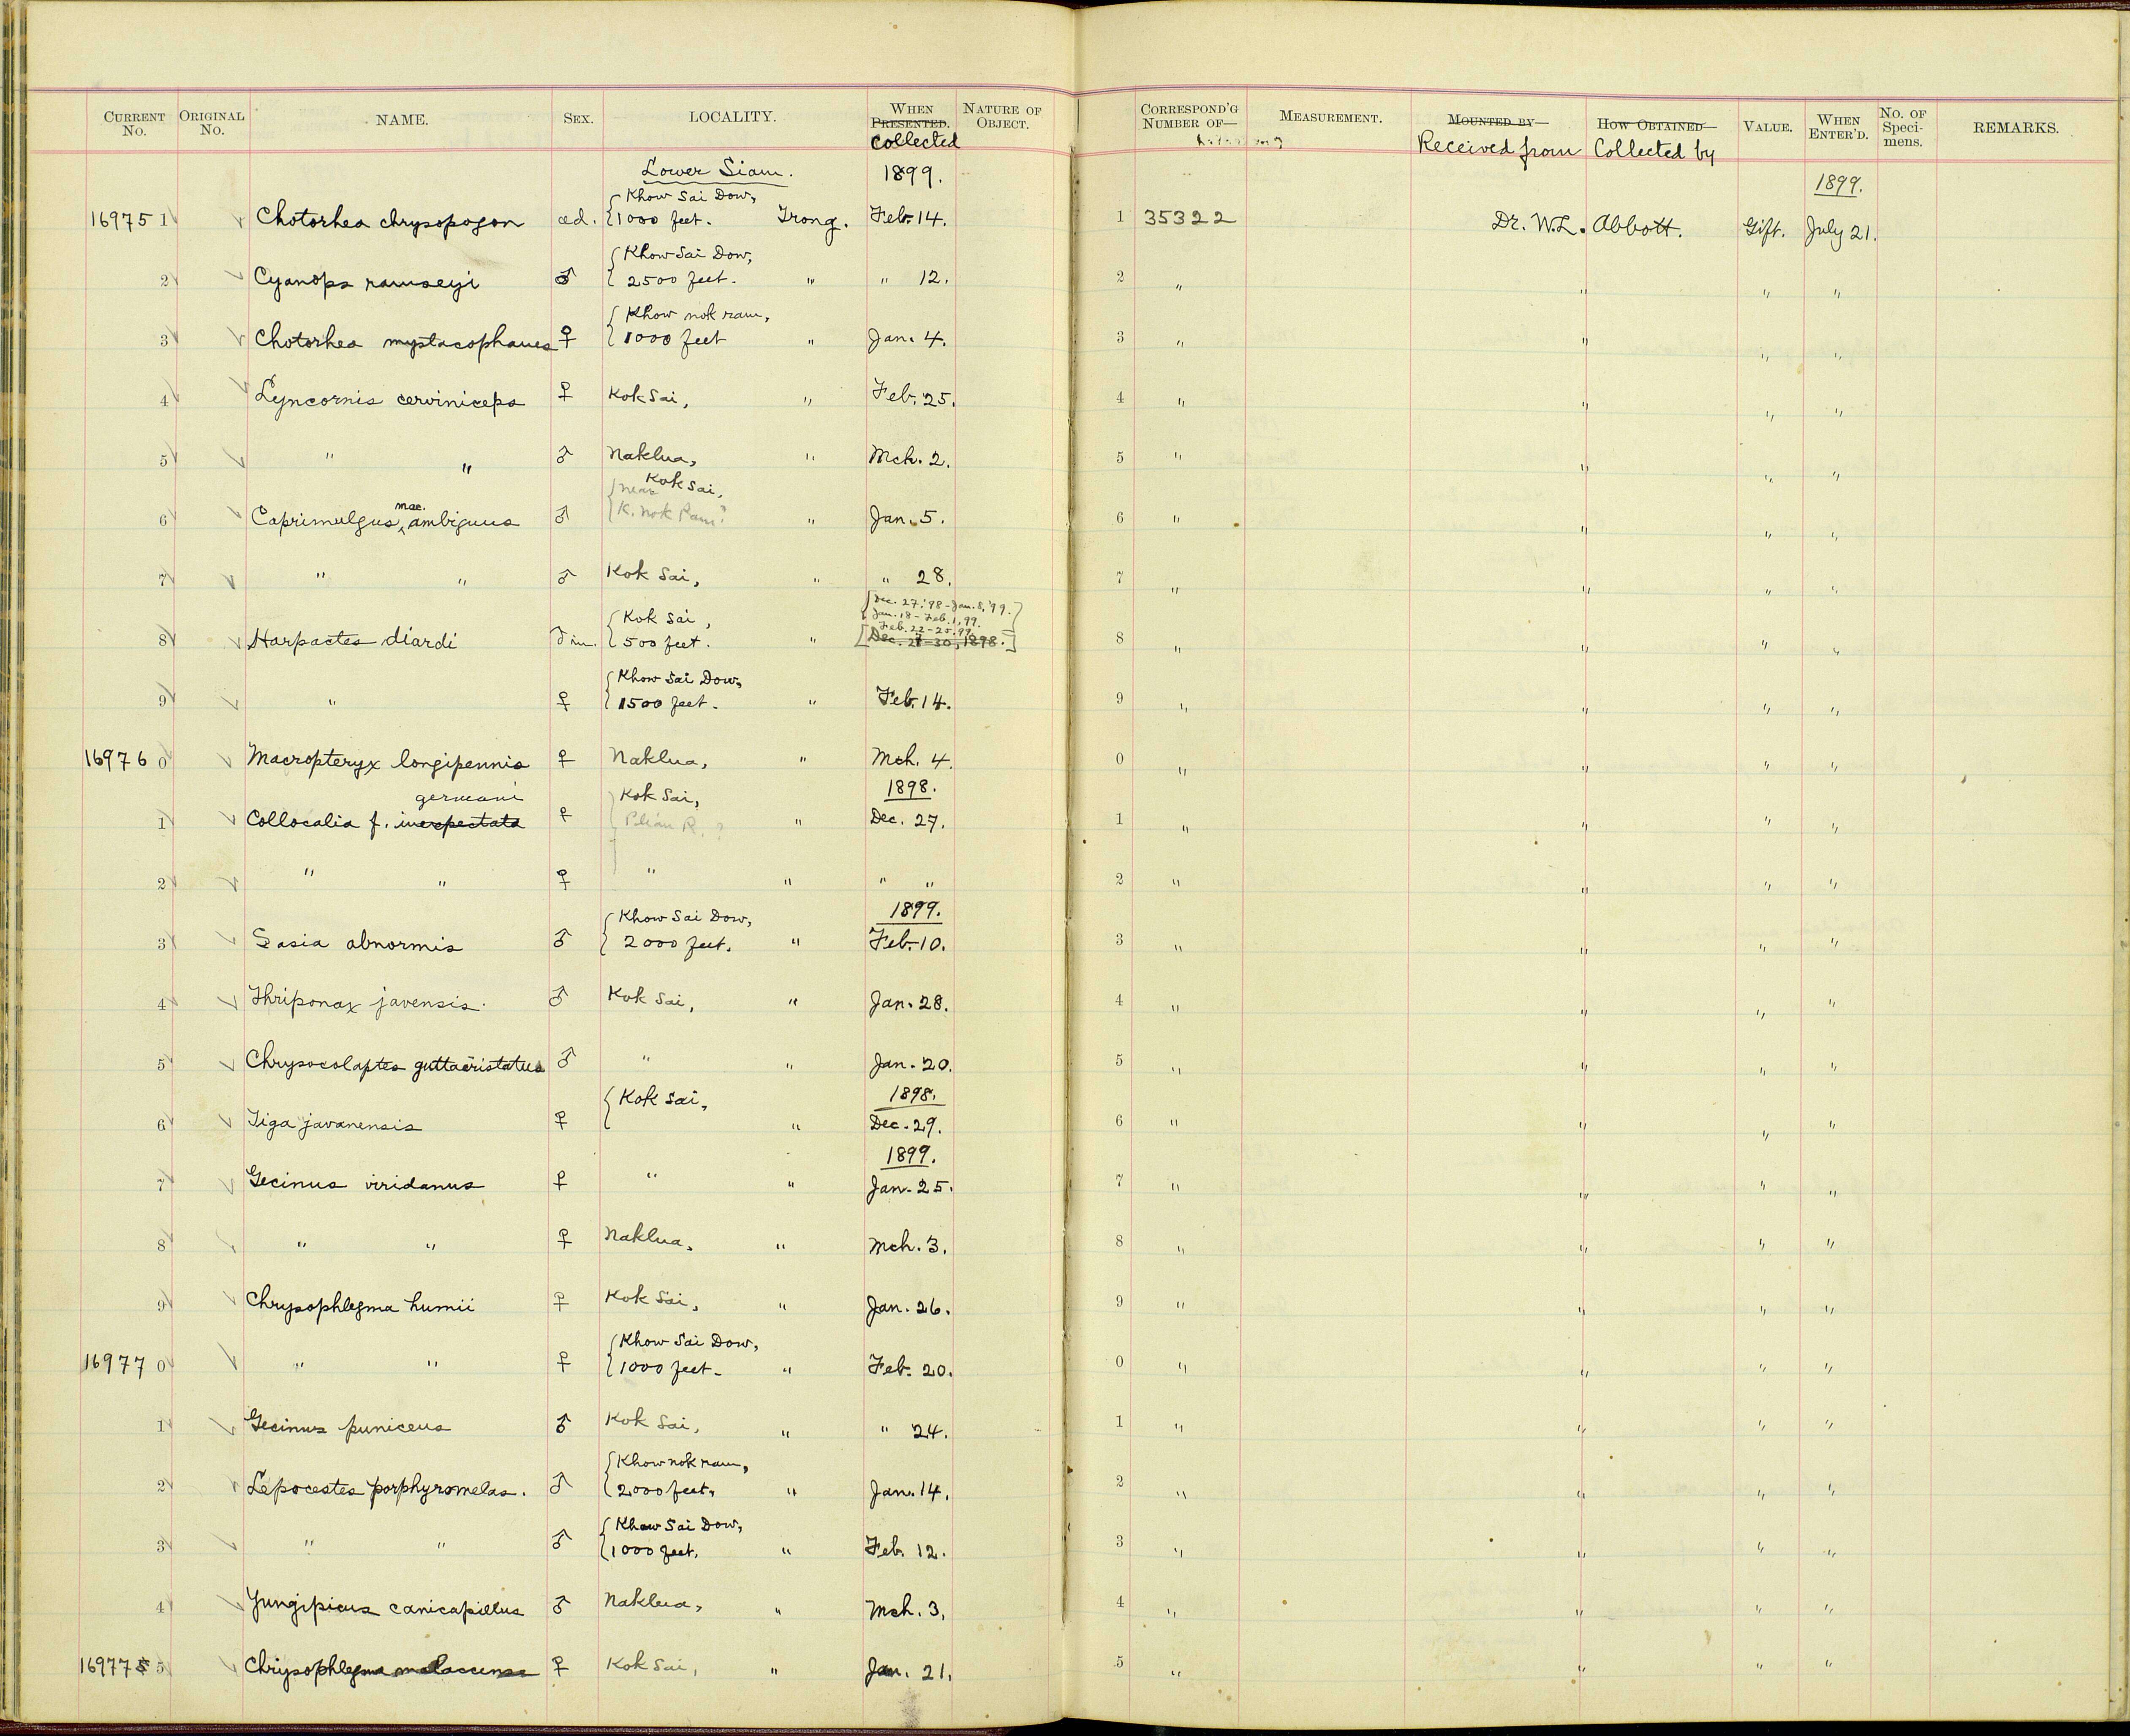 CURRENT No. ORIGINAL No. NAME. SEX. LOCALITY. WHEN PRESENTED. collected NATURE OF OBJECT. CORRESPOND'G NUMBER OF— MEASUREMENT. MOUNTED BY— Received from HOW OBTAINED— Collected by VALUE. WHEN ENTER'D. No. OF Speci-mens. REMARKS.
Lower Siam. 1899. 1899.
Khow Sai Dow,
16975 1 Chotorhea chrysopogon ad. 1000 feet. Trong. Feb. 14. 1 35322 Dr. W.L. Abbott. Gift. July 21.
Khow Sai Dow,
2 Cyanops ramsayi ♂ 2500 feet. " " 12. 2 " " " "
Khow nok ram,
3 Chotorhea mystacophanes ♀ 1000 feet " Jan. 4. 3 " " " "
4 Lyncornis cerviniceps ♀ Kok Sai, " Feb. 25. 4 " " " "
5 " " ♂ Naklua, " Mch. 2. 5 " " " "
near Kok Sai,
6 Caprimulgus mac. ambiguus ♂ K. Nok Ram? " Jan. 5. 6 " " " "
7 " " ♂ Kok Sai, " " 28. 7 " " " "
Dec. 27.'98 - Jan. 8,'99.
Jan. 18 - Feb. 1, 99.
Kok Sai, Feb. 22-25. 99
8 Harpactes diardi ♂ im. 500 feet. " Dec. 27-30, 1898. 8 " " " "
Khow Sai Dow,
9 " ♀ 1500 feet. " Feb. 14. 9 " " " "
16976 0 Macropteryx longipennis ♀ Naklua, " Mch. 4. 0 " " " "
germani Kok Sai, 1898.
1 Collocalia f. inexpectata ♀ " Dec. 27. 1 " " " "
2 " " ♀ " " " " 2 " " " "
Khow Sai Dow, 1899.
3 Sasia abnormis ♂ 2000 feet. " Feb. 10. 3 " " " "
4 Thriponax javensis. ♂ Kok Sai, " Jan. 28. 4 " " " "
5 Chrysocolaptes guttacristatus ♂ " " Jan. 20. 5 " " " "
Kok Sai, 1898.
6 Tiga javanensis ♀ " Dec. 29. 6 " " " "
1899.
7 Gecinus viridanus ♀ " " Jan. 25. 7 " " " "
8 " " ♀ Naklua, " Mch. 3. 8 " " " "
9 Chrysophlegma humii ♀ Kok Sai, " Jan. 26. 9 " " " "
Khow Sai Dow,
16977 0 " " ♀ 1000 feet. " Feb. 20. 0 " " " "
1 Gecinus puniceus ♂ Kok Sai, " " 24. 1 " " " "
Khow nok ram,
2 Lepocestes porphyromelas. ♂ 2000 feet, " Jan. 14. 2 " " " "
Khow Sai Dow,
3 " " ♂ 1000 feet. " Feb. 12. 3 " " " "
4 Yungipicus canicapillus ♂ Naklua, " Mch. 3. 4 " " " "
16977 5 Chrysophlegma malaccense ♀ Kok Sai, " Jan. 21. 5 " " " "